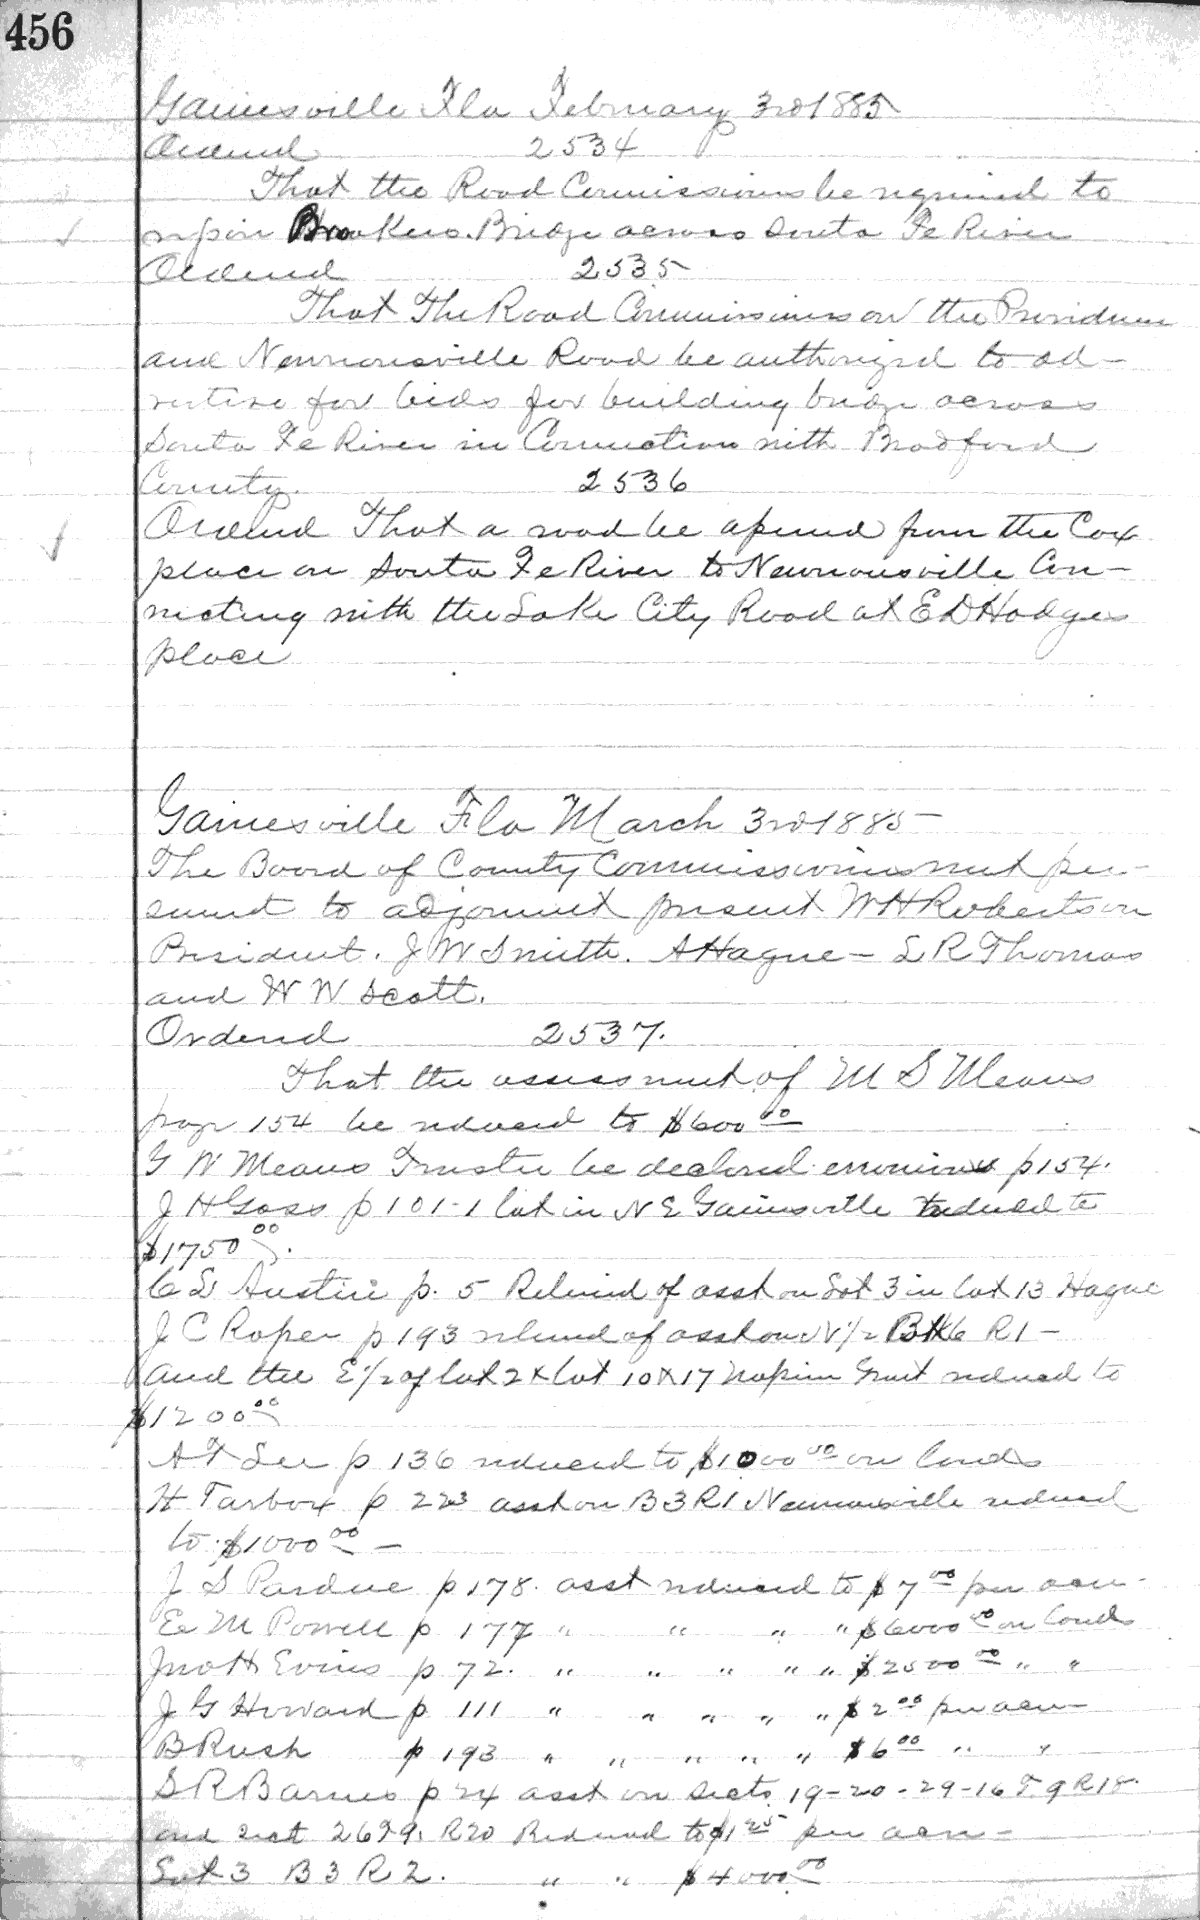 456
Gainesville Fla February 3rd 1885
Ordered 2534
That the Road Commissioners be required to
repair Brookers Bridge across Santa Fe River
Ordered 2535
That The Road Commissioners on the Providence
and Newnansville Road be authorized to ad-
vertise for bids for building bridge across
Santa Fe River in Connection with Bradford
County. 2536
Ordered That a road be opened from the Cox
place on Santa Fe River to Newnansville Con-
necting with the Lake City Road at E D Hodges
place
Gainesville Fla March 3rd 1885
The Board of County Commissioners met per-
suant to adjournment present W H Robertson
President. J W Smith. A Hague - L R Thomas
and W W Scott.
Ordered 2537.
That the assessment of M S Means
page 154 be reduced to $600 00
G W Means Trustee be declared erronious p 154.
J H Goss p 101 - 1 lot in N E Gainesville reduced to
$1750 00.
C L Austin p. 5 Relieved of asst on Lot 3 in lot 13 Hague
J C Roper p 193 relieved of asst on N 1/2 B 6 R 1 -
and the E 1/2 of lot 2 & lot 10 & 17 Grant reduced to
$1200 00
A F Lee p 136 reduced to $1000 00 on lands
H Tarbox p 223 asst on B 3 R 1 Newnansville reduced
to $1000 00 -
J S Pardue p 178. asst reduced to $7 00 per acre -
E M Powell p 177 " " " " $6000 00 on lands
Jno H Evins p 72. " " " " " $2500 00 " "
J G Howard p 111 " " " " " $2 00 per acre -
B Rush p 193 " " " " " $6 00 " "
S R Barnes p 24 asst on Sects 19-20-29-16 T. 9 R 18.
and sect 26 T 9. R 20 Reduced to $1 25 per acre -
Lot 3 B 3 R 2. " " $4000 00